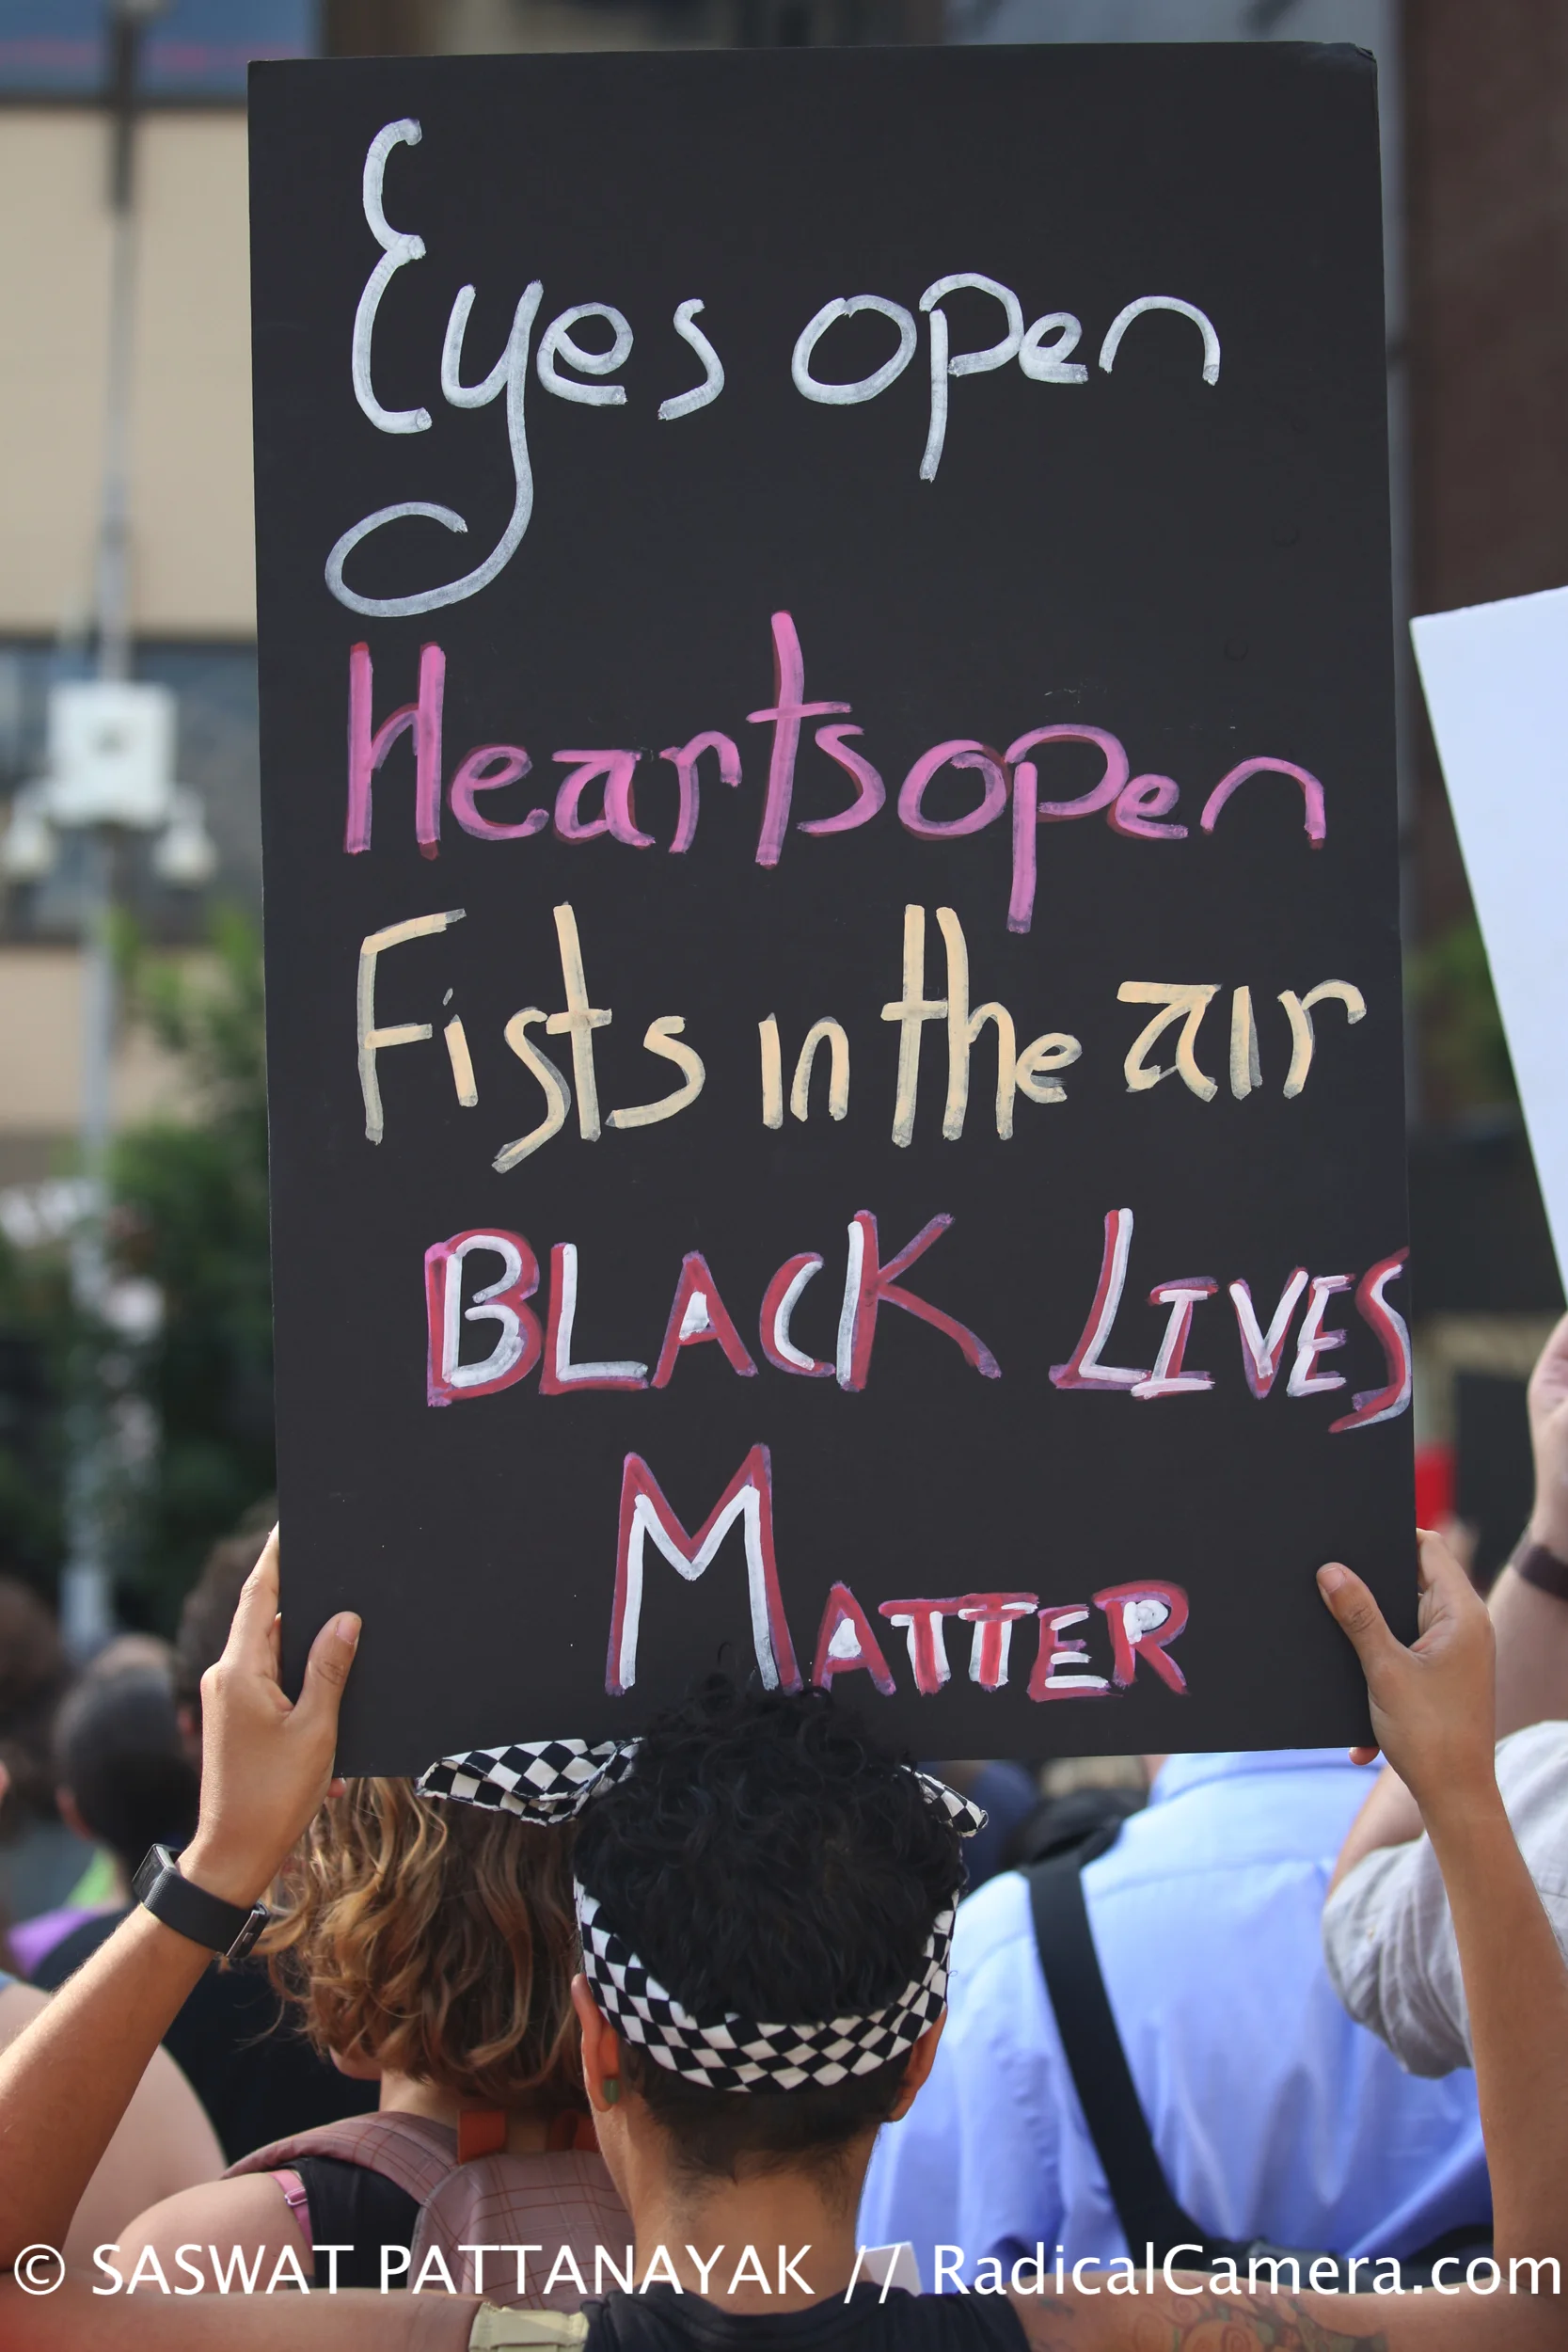 Eyes open
Hearts open
Fists in the air
BLACK LIVES
MATTER
© SASWAT PATTANAYAK // RadicalCamera.com